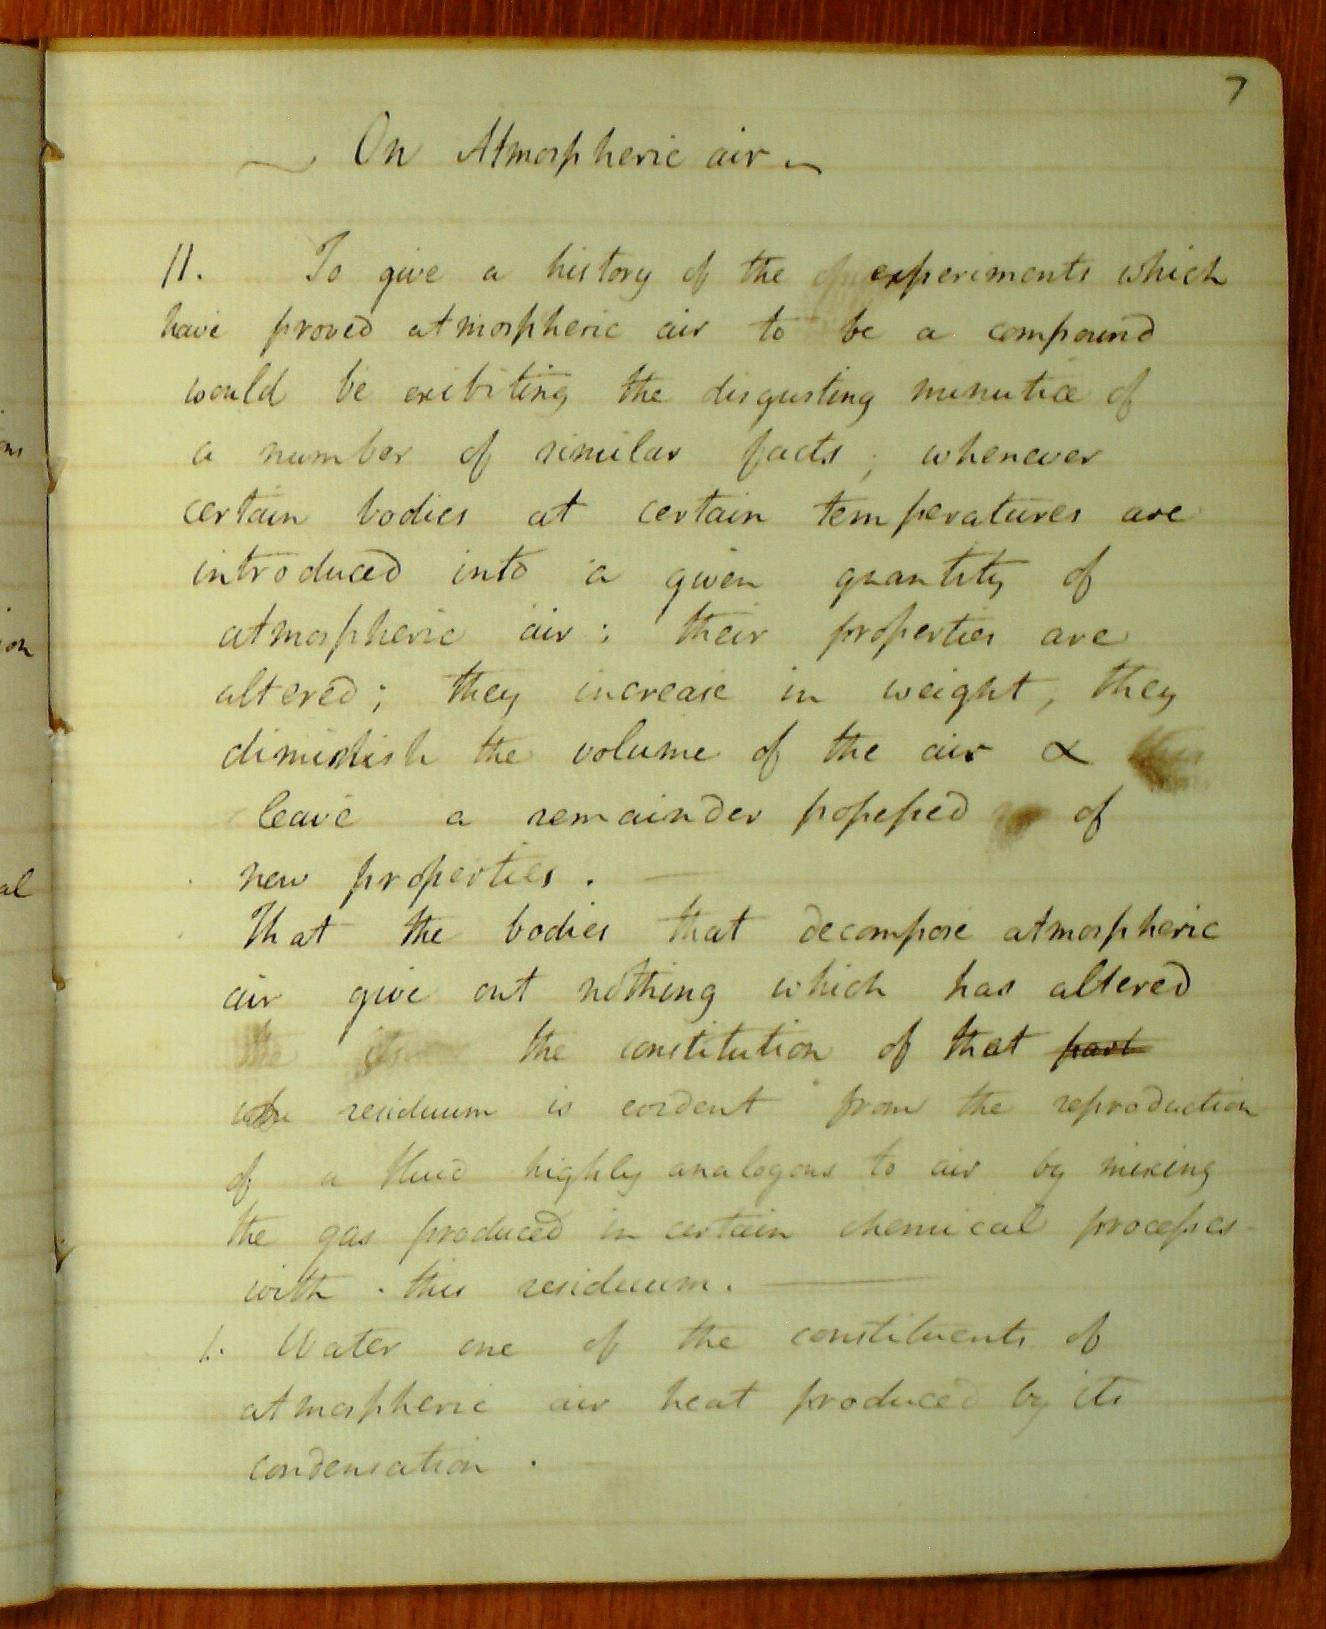 7
On Atmospheric air
11. To give a history of the experiments which
have proved atmospheric air to be a compound
would be exibiting the disgusting minutiæ of
a number of similar facts; whenever
certain bodies at certain temperatures are
introduced into a given quantity of
atmospheric air: their properties are
altered; they increase in weight, they
diminish the volume of the air &
leave a remainder possessed of
new properties.
That the bodies that decompose atmospheric
air give out nothing which has altered
the the constitution of that part
residuum is evident from the reproduction
of a fluid highly analogous to air by mixing
the gas produced in certain chemical processes
with this residuum.
1. Water one of the constituents of
atmospheric air heat produced by its
condensation.
ion
al